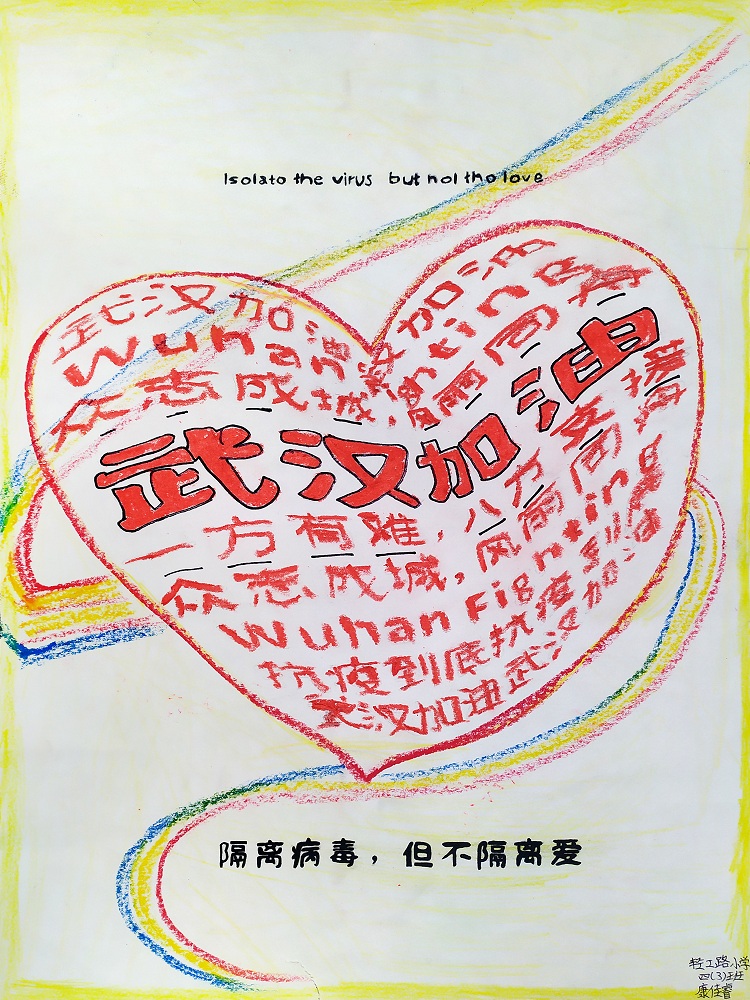 Isolato the virus but not tho love
武汉加油 加油
Wuhan Fighting
众志成城,风雨同舟
武汉加油
一方有难,八方支援
众志成城,风雨同舟
Wuhan Fighting
抗疫到底抗疫到底
武汉加油武汉加油
隔离病毒,但不隔离爱
轻工路小学
四(3)班
康佳睿